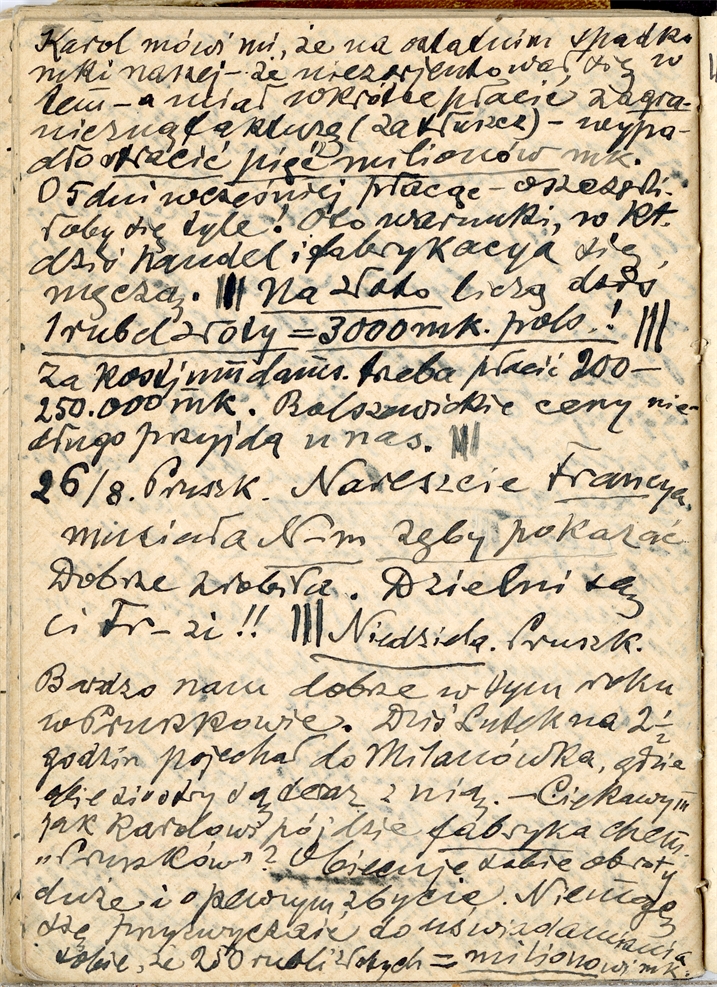 Karol mówi mi, że na ostatnim spadku
mki naszej – że niezorjentował się w
tem – a miał wkrótce płacić zagra-
niczną fakturę (za tłuszcz) – wypa-
dło stracić pięć milionów mk.
O 5 dni wcześniej płacąc – oszczędzi-
łoby się tyle! Oto warunki, w kt.
dziś handel i fabrykacya się
męczą. ||| Na złoto liczą dziś
1 rubel złoty = 3000 mk. pols.! |||
Za kostjum dams. trzeba płacić 200–
250.000 mk. Bolszewickie ceny nie-
długo przyjdą u nas. |||
26/8. Pruszk. Nareszcie Francya
musiała N–m zęby pokazać
Dobrze zrobiła. Dzielni są
ci Fr–zi!! ||| Niedziela. Pruszk.
Bardzo nam dobrze w tym roku
w Pruszkowie. Dziś Lutek na 2½
godzin pojechał do Milanówka, gdzie
obie siostry są teraz z nią. – Ciekawym
jak Karolowi pójdzie fabryka chem.
"Pruszków"? Obiecuje sobie obroty
duże i o pewnym zbycie. Niemogę
się przyzwyczaić do uświadamiania
sobie, że 250 rubli złotych = milionowi mk.